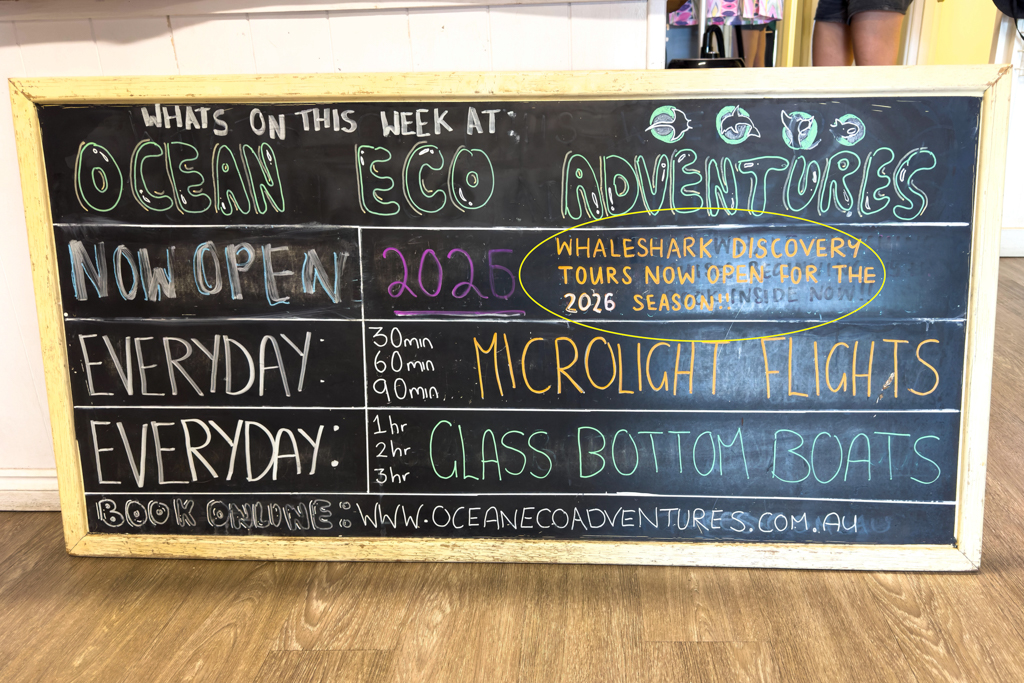 WHATS ON THIS WEEK AT:
OCEAN ECO ADVENTURES
NOW OPEN
2026
WHALESHARK DISCOVERY
TOURS NOW OPEN FOR THE
2026 SEASON!!
EVERYDAY:
30min
60min
90min...
MICROLIGHT FLIGHTS
EVERYDAY:
1hr
2hr
3hr
GLASS BOTTOM BOATS
BOOK ONLINE: WWW.OCEANECOADVENTURES.COM.AU